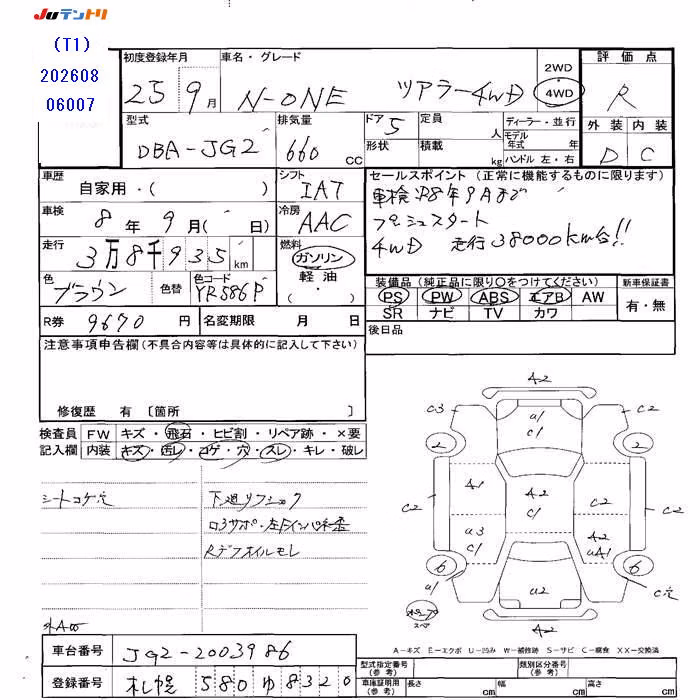 JUテントリ
(T1)
202608
06007
初度登録年月
25 9月
車名・グレード
N-ONE ツアラー4WD
2WD
4WD
評価点
R
外装 内装
D C
型式
DBA-JG2
排気量
660 cc
ドア 5
形状
定員 人
積載 kg
ディーラー・並行
モデル年式 年
ハンドル 左・右
車歴
自家用・( )
シフト
IAT
セールスポイント (正常に機能するものに限ります)
車検R8年9月まで
プッシュスタート
4WD 走行38000km台!!
車検
8年 9月( 日)
冷房
AAC
走行
3万8千935km
燃料
ガソリン・軽油
・( )
色
ブラウン
色替
色コード
YR586P
装備品 (純正品に限り○をつけてください)
PS PW ABS エアB AW
SR ナビ TV カワ
新車保証書
有・無
R券 9670円
名変期限 月 日
後日品
注意事項申告欄(不具合内容等は具体的に記入して下さい)
修復歴 有 〔箇所 〕
検査員記入欄
FW キズ・飛石・ヒビ割・リペア跡・×要
内装 キズ・汚レ・コゲ・穴・スレ・キレ・破レ
シートコゲ穴
下廻リフショック
Rデフオイルモレ
外A00
A2
C3 A1 C1 C2
2 2
A1 A2 C2
C2 C1 C2
a3 A2
C1 UA1
6 6
a1 a2 C穴
スペア
A2
A-キズ E-エクボ U-凹み W-補修跡 S-サビ C-腐食 XX-交換済
車台番号
JG2-2003986
登録番号
札幌 580 ゆ 8320
型式指定番号(参考)
類別区分番号(参考)
車庫証明用(参考)
長さ cm
幅 cm
高さ cm